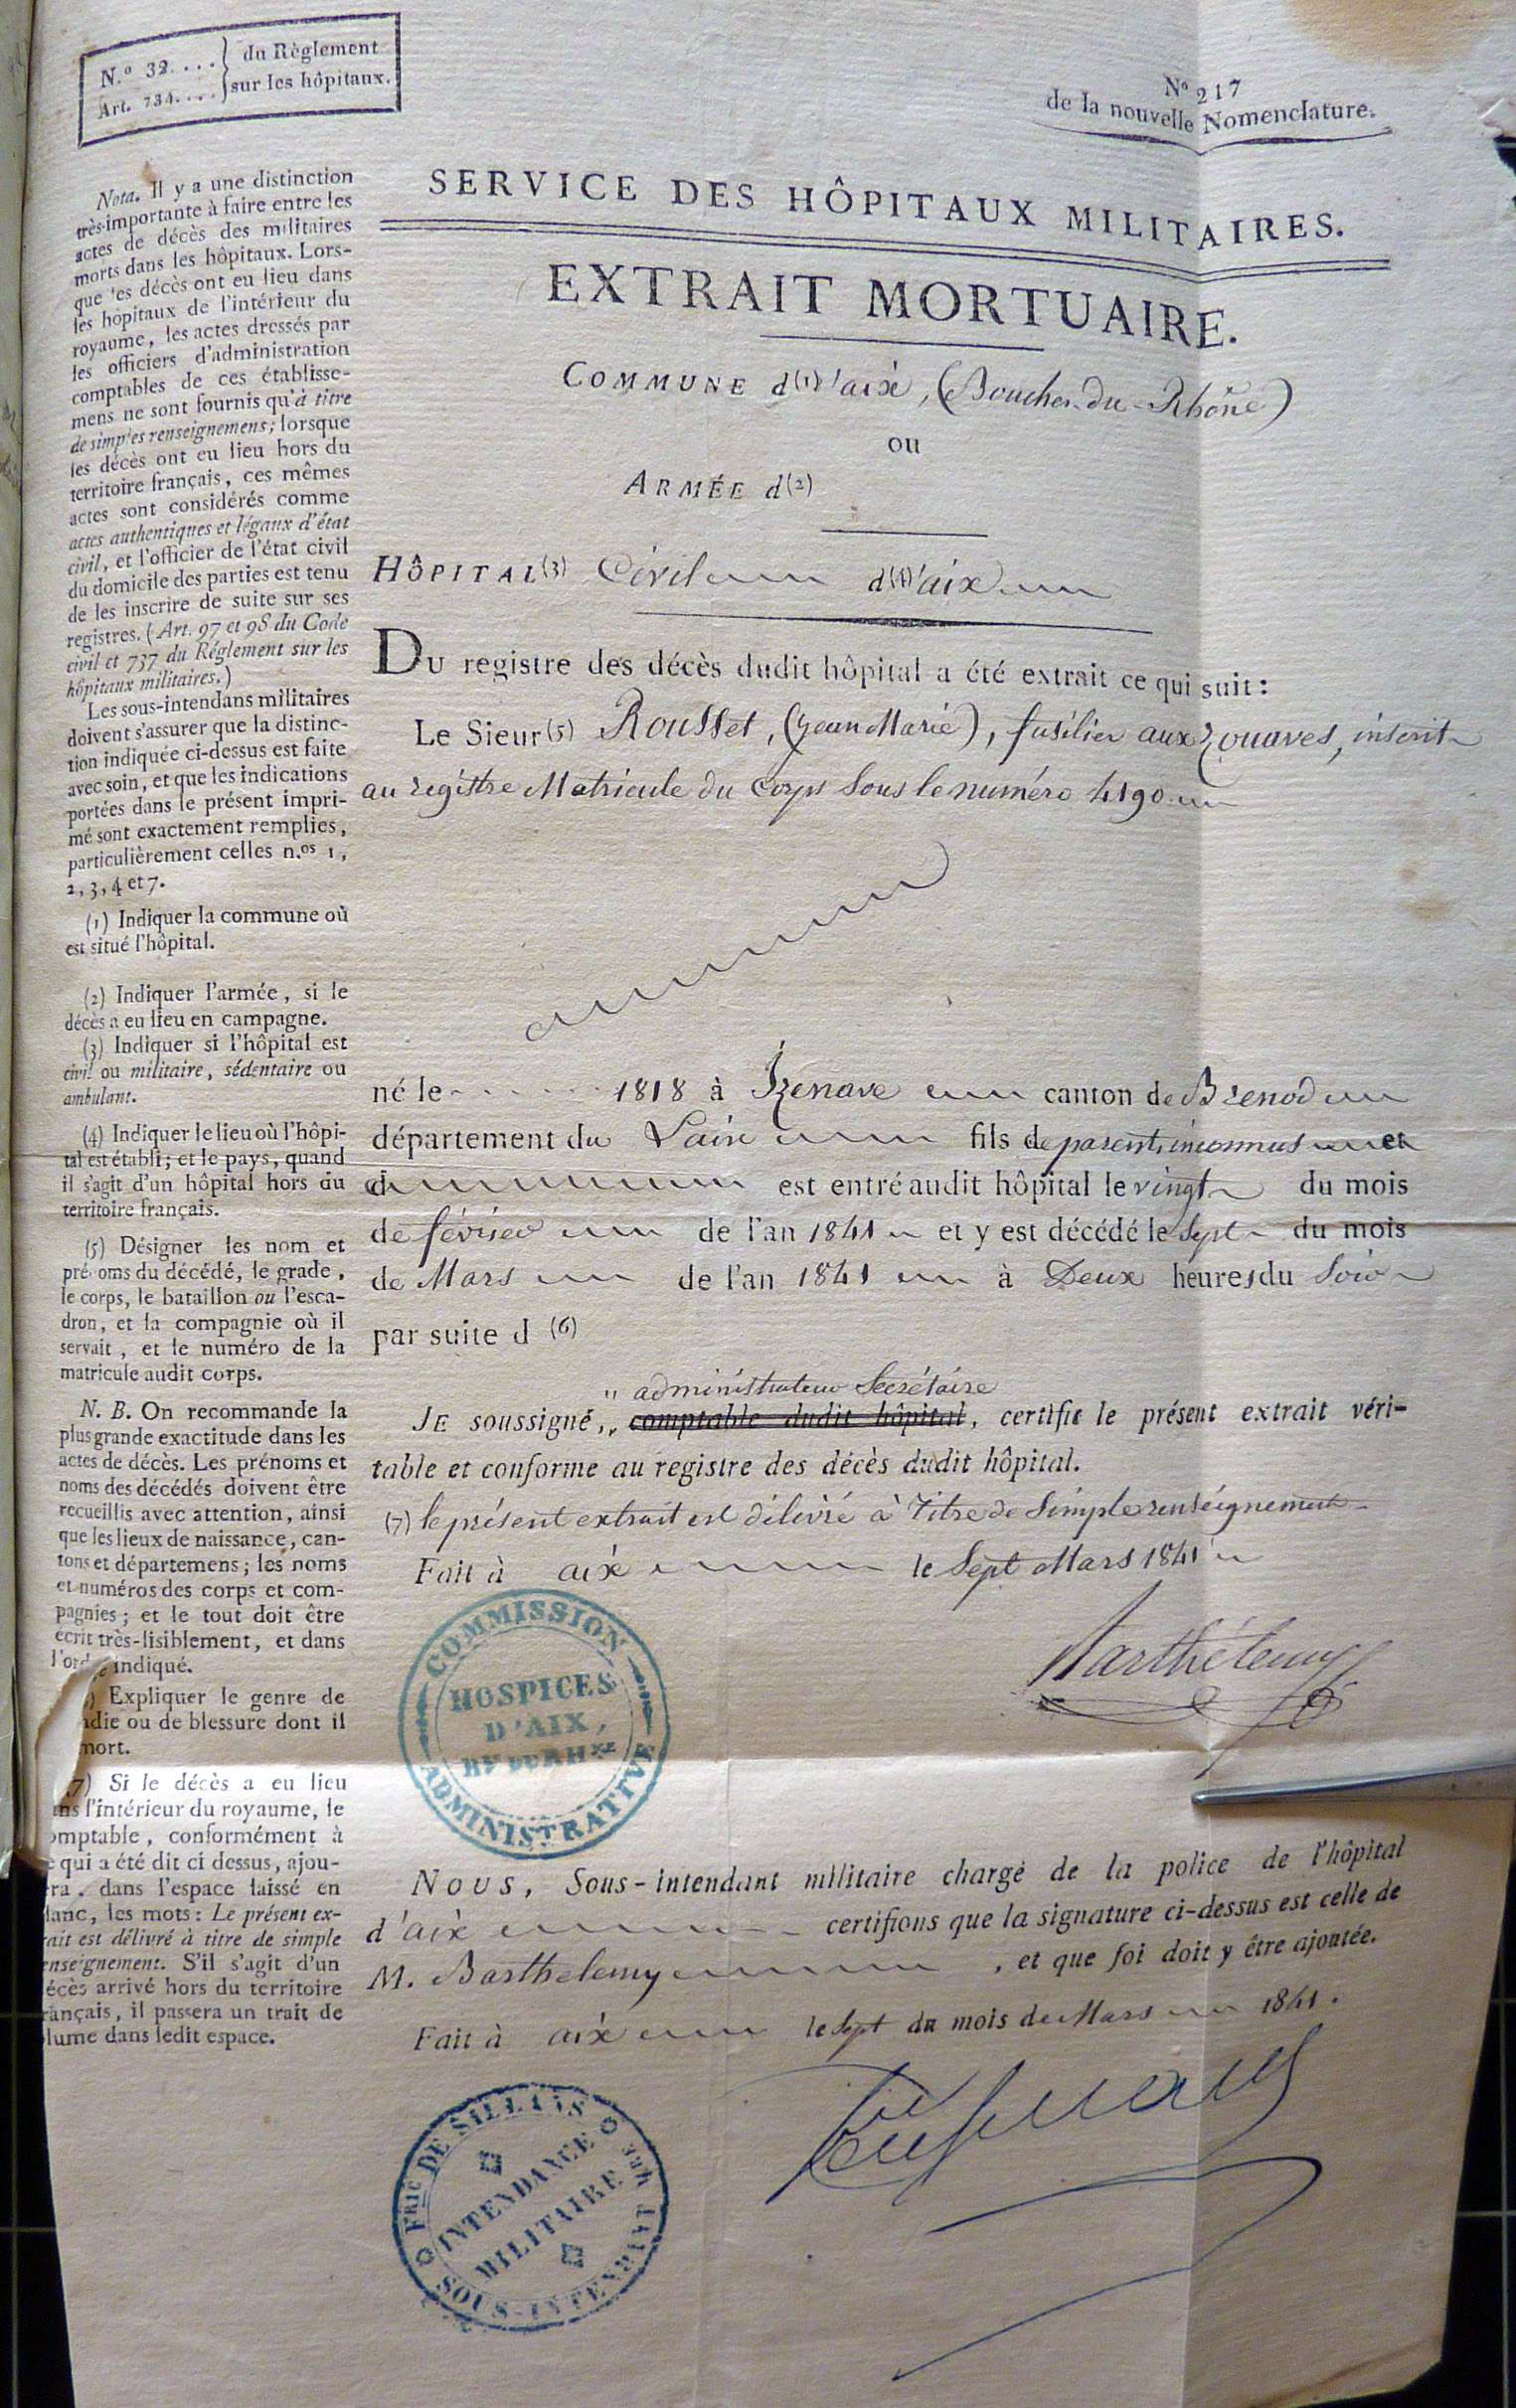 N.º 32.... du Règlement
Art. 734.... sur les hôpitaux.
Nº 217
de la nouvelle Nomenclature.
Nota. Il y a une distinction
très-importante à faire entre les
actes de décès des militaires
morts dans les hôpitaux. Lors-
que les décès ont eu lieu dans
les hôpitaux de l'intérieur du
royaume, les actes dressés par
les officiers d'administration
comptables de ces établisse-
mens ne sont fournis qu'à titre
de simples renseignemens; lorsque
les décès ont eu lieu hors du
territoire français, ces mêmes
actes sont considérés comme
actes authentiques et légaux d'état
civil, et l'officier de l'état civil
du domicile des parties est tenu
de les inscrire de suite sur ses
registres. (Art. 97 et 98 du Code
civil et 737 du Réglement sur les
hôpitaux militaires.)
Les sous-intendans militaires
doivent s'assurer que la distinc-
tion indiquée ci-dessus est faite
avec soin, et que les indications
portées dans le présent impri-
mé sont exactement remplies,
particulièrement celles n.os 1,
2, 3, 4 et 7.
(1) Indiquer la commune où
est situé l'hôpital.
(2) Indiquer l'armée, si le
décès a eu lieu en campagne.
(3) Indiquer si l'hôpital est
civil ou militaire, sédentaire ou
ambulant.
(4) Indiquer le lieu où l'hôpi-
tal est établi; et le pays, quand
il s'agit d'un hôpital hors du
territoire français.
(5) Désigner les nom et
prénoms du décédé, le grade,
le corps, le bataillon ou l'esca-
dron, et la compagnie où il
servait, et le numéro de la
matricule audit corps.
N. B. On recommande la
plus grande exactitude dans les
actes de décès. Les prénoms et
noms des décédés doivent être
recueillis avec attention, ainsi
que les lieux de naissance, can-
tons et départemens; les noms
et numéros des corps et com-
pagnies; et le tout doit être
écrit très-lisiblement, et dans
l'ordre indiqué.
) Expliquer le genre de
adie ou de blessure dont il
mort.
7) Si le décès a eu lieu
ans l'intérieur du royaume, le
omptable, conformément à
e qui a été dit ci dessus, ajou-
ra, dans l'espace laissé en
lanc, les mots: Le présent ex-
rait est délivré à titre de simple
enseignement. S'il s'agit d'un
écès arrivé hors du territoire
rançais, il passera un trait de
lume dans ledit espace.
SERVICE DES HÔPITAUX MILITAIRES.
EXTRAIT MORTUAIRE.
COMMUNE d(1)'aix, (Bouches-du-Rhône)
ou
ARMÉE d(2)
HÔPITAL(3) Civil d(4)'aix
DU registre des décès dudit hôpital a été extrait ce qui suit:
Le Sieur(5) Rousset, (Jean Marie), fusilier aux Zouaves, inscrit
au registre Matricule du Corps sous le numéro 4190
né le 1818 à Izenave canton de Brenod
département du Lain fils de parents inconnus et
d est entré audit hôpital le vingt du mois
de février de l'an 1841 et y est décédé le sept du mois
de Mars de l'an 1841 à Deux heures du soir
par suite d (6)
" administrateur Secrétaire
JE soussigné, " comptable dudit hôpital, certifie le présent extrait véri-
table et conforme au registre des décès dudit hôpital.
(7) le présent extrait est délivré à titre de simple renseignement
Fait à aix le sept Mars 1841
Barthélemy
COMMISSION ADMINISTRATIVE
HOSPICES
D'AIX,
Bes DU RHNE
NOUS, Sous-intendant militaire chargé de la police de l'hôpital
d'aix certifions que la signature ci-dessus est celle de
M. Barthelemy, et que foi doit y être ajoutée.
Fait à aix le sept du mois de Mars 1841.
FRIC DE SILLANS
INTENDANCE
MILITAIRE
SOUS-INTENDANT MRE